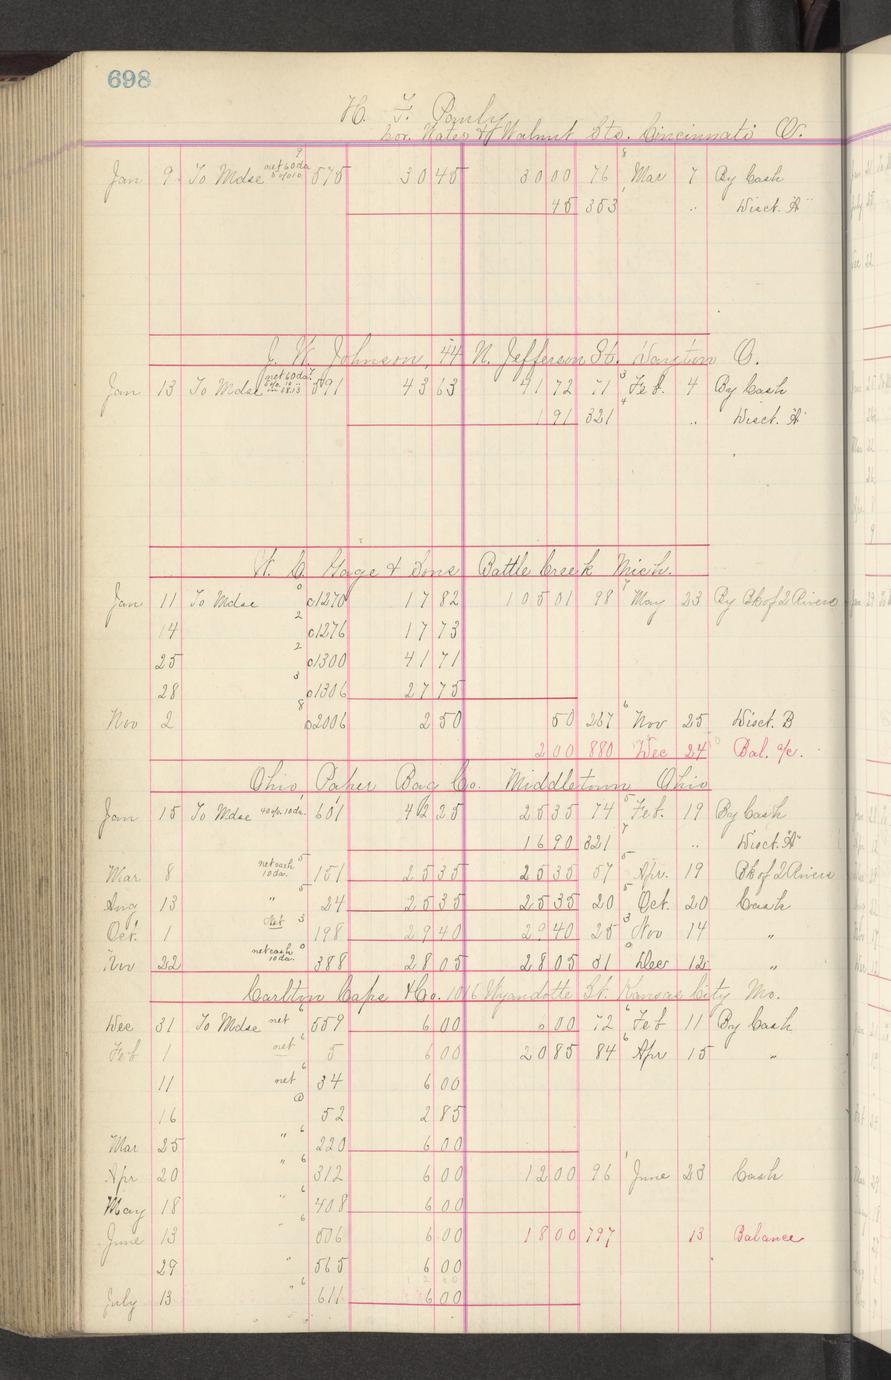 698
H. F. Pauly
Cor. Water & Walnut Sts. Cincinnati O.
Jan 9 To Mdse net 60 da 9 575 3045 3000 76 8 Mar 7 By Cash
45 353 " Disct. "A"
J. W. Johnson, 44 N. Jefferson St. Dayton O.
Jan 13 To Mdse net 60 da 591 4363 4172 71 3 Feb. 4 By Cash
191 321 4 " Disct. "A"
W. C. Gage & Sons Battle Creek Mich.
Jan 11 To Mdse 0 o1270 1782 10501 98 7 May 23 By Bk of 2 Rivers
14 2 o1276 1773
25 2 o1300 4171
28 3 o1306 2775
Nov 2 8 o2006 250 50 267 6 Nov 25 Disct. B
200 880 Dec 24 Bal. a/c.
Ohio Paper Bag Co. Middletown Ohio
Jan 15 To Mdse 40% 10 da. 601 4225 2535 74 5 Feb. 19 By Cash
1690 321 7 " Disct. "A"
Mar 8 net cash 10 da. 5 151 2535 2535 57 5 Apr. 19 Bk of 2 Rivers
Aug 13 " 5 24 2535 2535 20 5 Oct. 20 Cash
Oct. 1 Net 3 198 2940 2940 25 3 Nov 14 "
Nov 22 net cash 10 da. 0 388 2805 2805 31 0 Dec 12 "
Carlton Caps & Co. 1016 Wyandotte St. Kansas City Mo.
Dec 31 To Mdse net 6 559 600 600 72 6 Feb 11 By Cash
Feb 1 net 6 5 600 2085 84 6 Apr 15 "
11 net 6 34 600
16 52 285
Mar 25 " 6 220 600
Apr 20 " 6 312 600 1200 96 1 June 23 Cash
May 18 " 6 408 600
June 13 " 6 506 600 1800 797 13 Balance
29 " 565 600
July 13 " 6 611 600